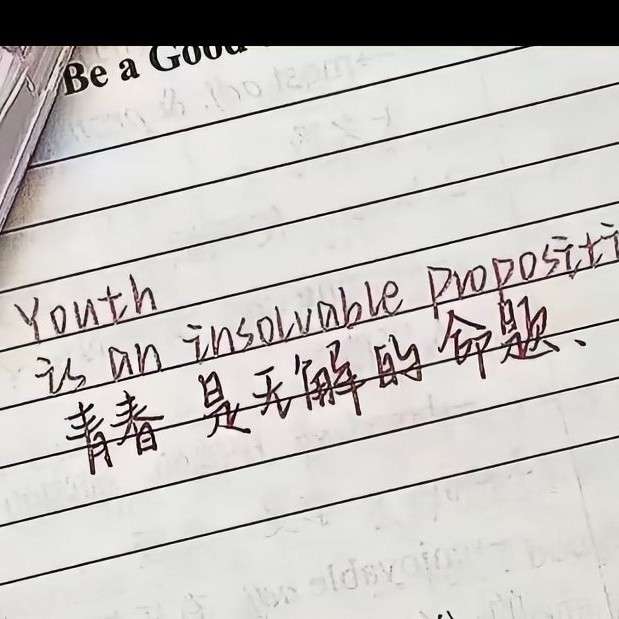 Be a Good
Youth
is an insolvable propositi
青春是无解的命题、